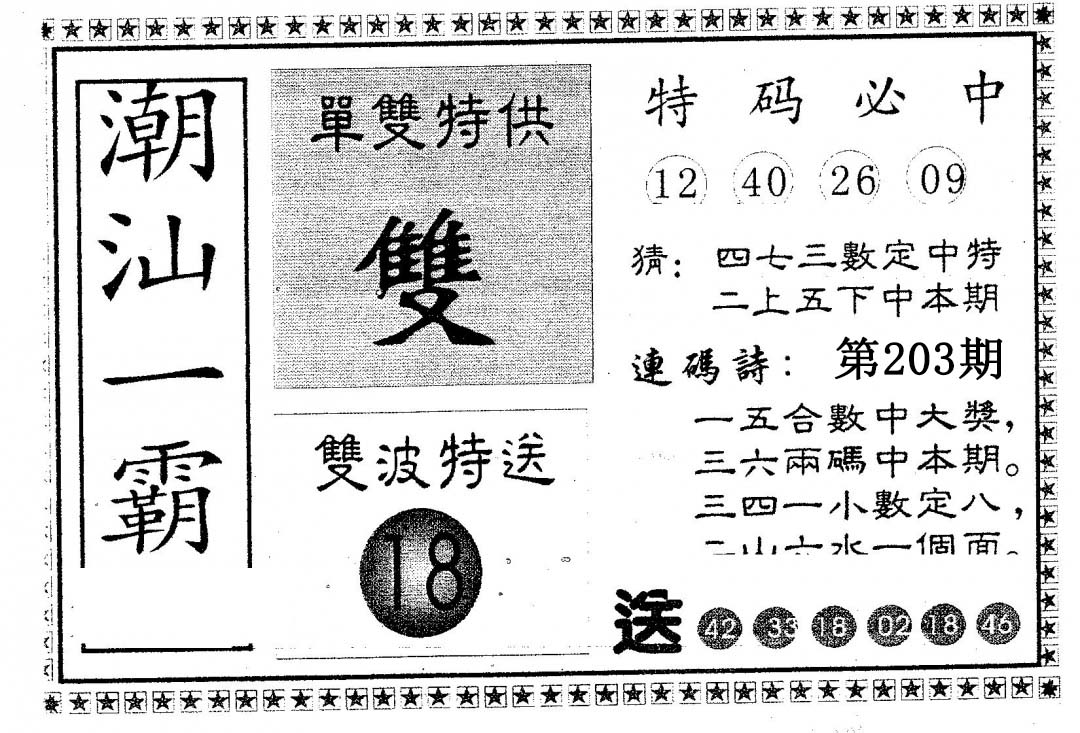 潮汕一霸
單雙特供
雙
雙波特送
18
特码必中
12 40 26 09
猜：四七三數定中特
二上五下中本期
連碼詩：第203期
一五合數中大獎，
三六兩碼中本期。
三四一小數定八，
二山六水一個面。
送 42 33 18 02 18 46